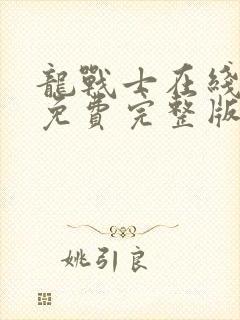 龍戰士在綫
免費完整版
姚引良